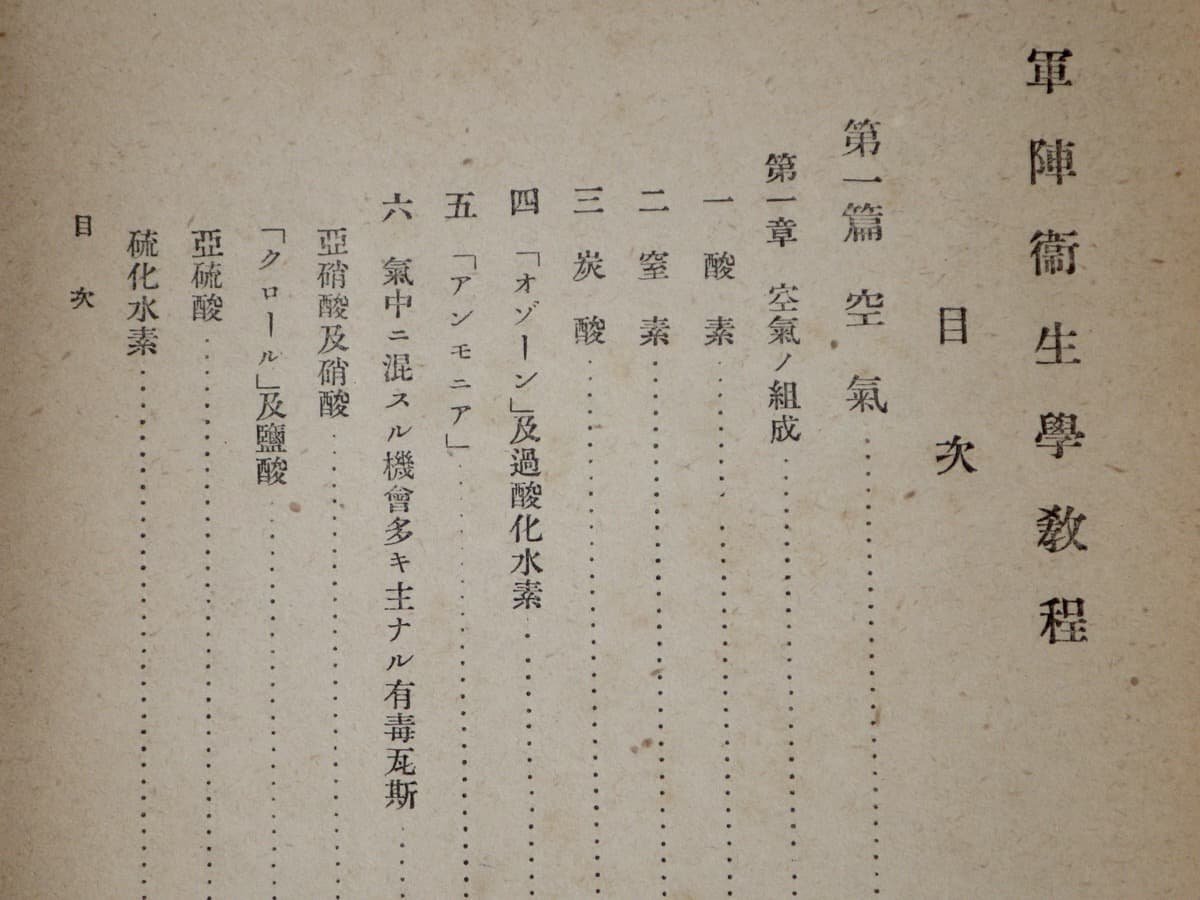 軍陣衞生學敎程
目次
第一篇 空氣
第一章 空氣ノ組成
一 酸素
二 窒素
三 炭酸
四 「オゾーン」及過酸化水素
五 「アンモニア」
六 氣中ニ混スル機會多キ主ナル有毒瓦斯
亞硝酸及硝酸
「クロール」及鹽酸
亞硫酸
硫化水素
目次